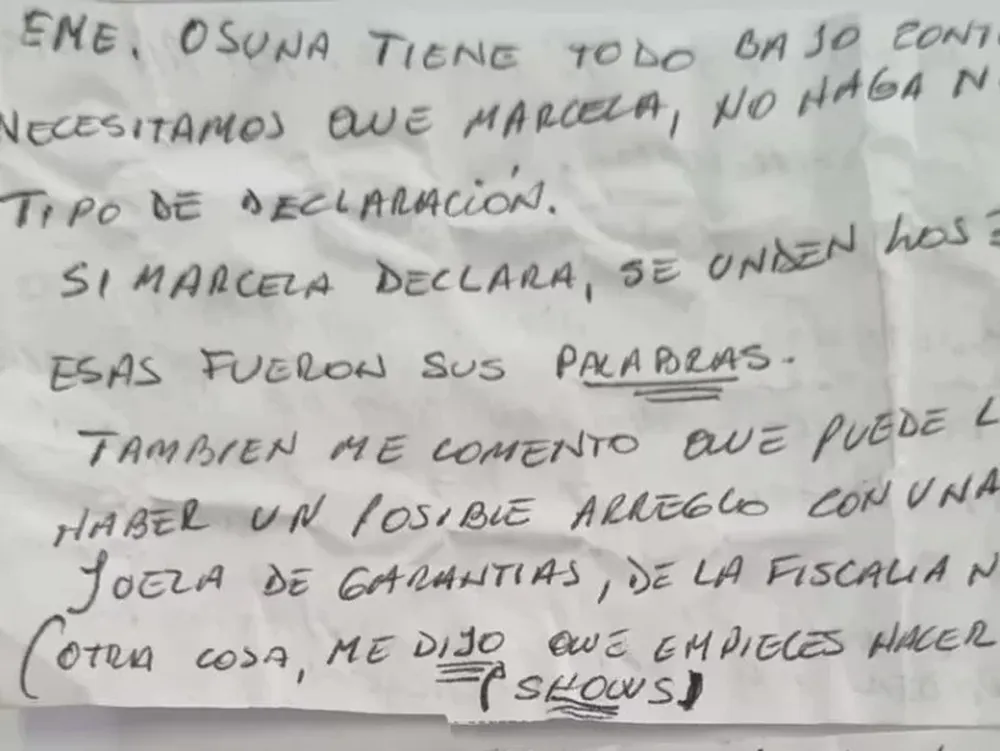 EME. OSUNA TIENE TODO BAJO CONT
NECESITAMOS QUE MARCELA, NO HAGA N
TIPO DE DECLARACIÓN.
SI MARCELA DECLARA, SE UNDEN LOS 3
ESAS FUERON SUS PALABRAS.
TAMBIEN ME COMENTO QUE PUEDE L
HABER UN POSIBLE ARREGLO CON UNA
JUEZA DE GARANTIAS, DE LA FISCALIA N
(OTRA COSA, ME DIJO QUE EMPIECES HACER
(SHOWS)